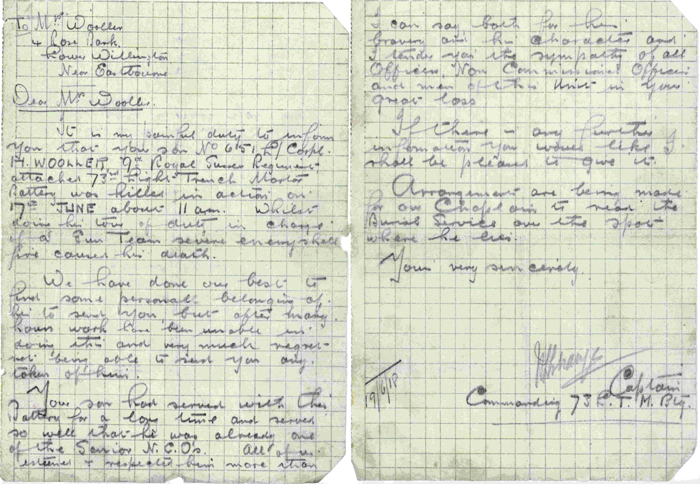 To Mrs Wooller
4 Rose Bank.
Lower Willington
Near Eastbourne
Dear Mrs Wooller.
It is my painful duty to inform
you that your son No 651 L/Corpl.
H. WOOLLER, 9th Royal Sussex Regiment
attached 73rd Light Trench Mortar
Battery was killed in action on
17th JUNE about 11 am. Whilst
doing his tour of duty in charge
of a Gun Team severe enemy shell
fire caused his death.
We have done our best to
find some personal belonging of
his to send you, but after many
hours work have been unable in
doing this and very much regret
not being able to send you any
token of him.
Your son had served with this
Battery for a long time and served
so well that he was already one
of the Senior N.C.O's. All of us
esteemed & respected him more than
I can say both for his
bravery and his character and
I tender you the sympathy of all
Officers, Non Commissioned Officers
and men of this Unit in your
great loss
If there is any further
information you would like I
shall be pleased to give it.
Arrangement are being made
for our Chaplain to read the
Burial Service over the spot
where he lies.
Yours very sincerely.
Captain
19/6/18
Commanding 73 L.T.M. Bty.